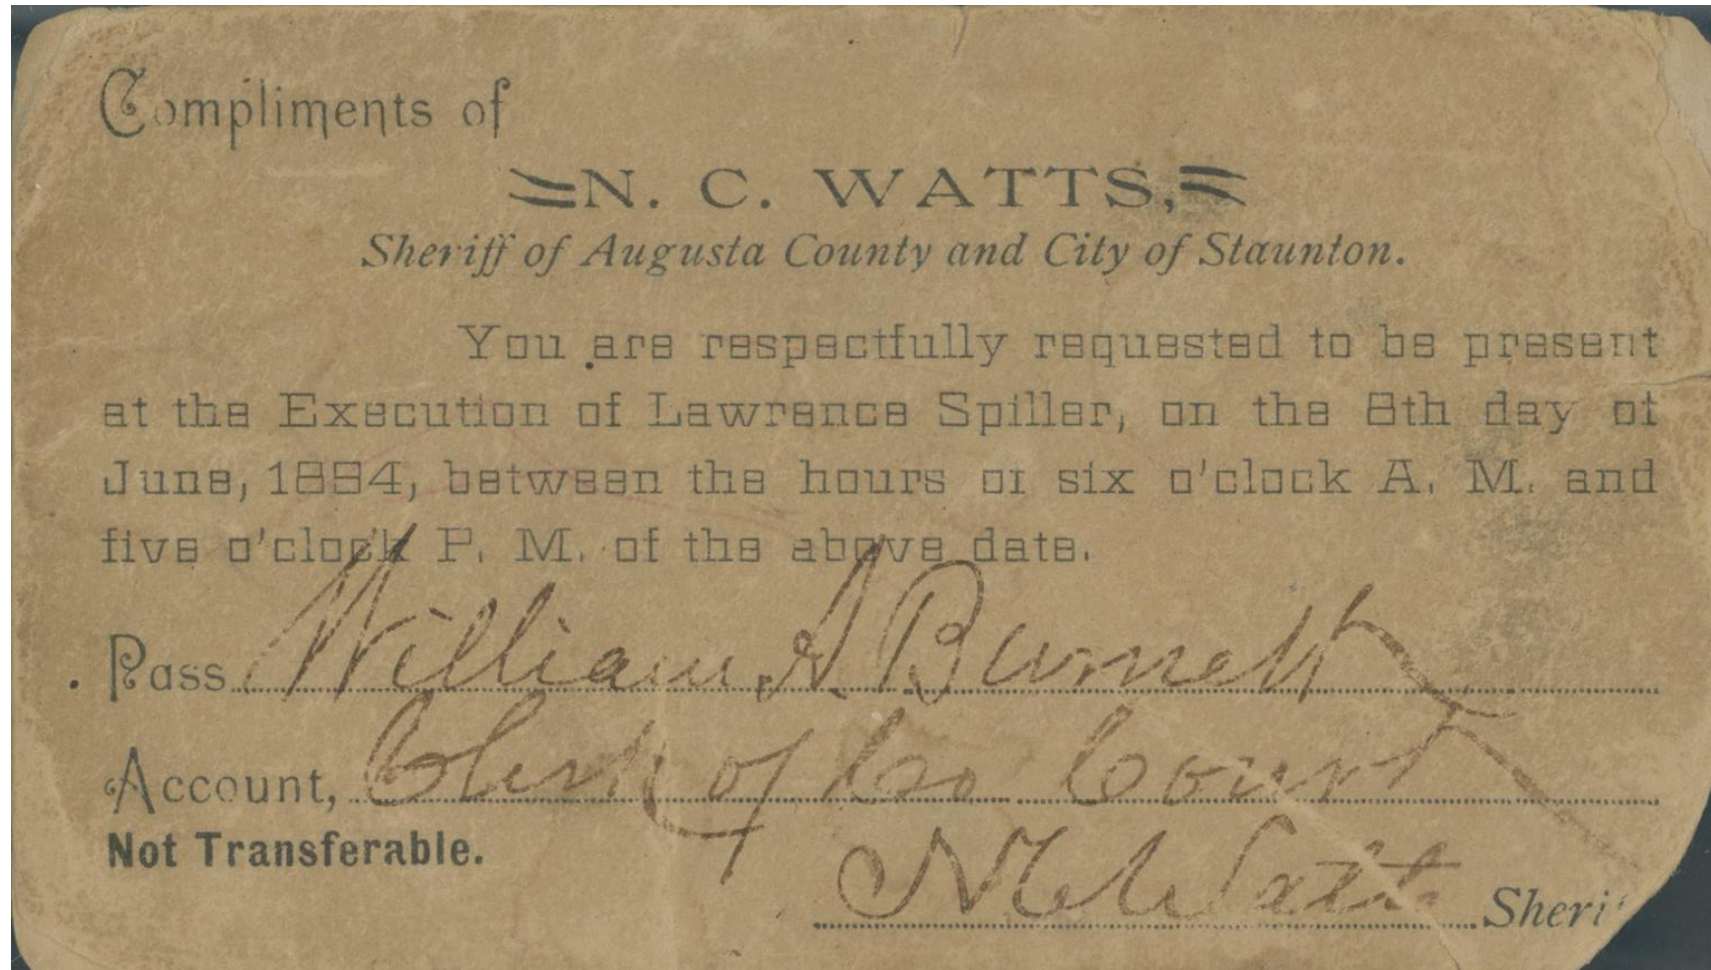 Compliments of
N. C. WATTS,
Sheriff of Augusta County and City of Staunton.
You are respectfully requested to be present
at the Execution of Lawrence Spiller, on the 8th day of
June, 1884, between the hours of six o'clock A. M. and
five o'clock P. M. of the above date.
Pass William A Burnett
Account, Clerk of Co Court
Not Transferable.
N C Watts Sheri